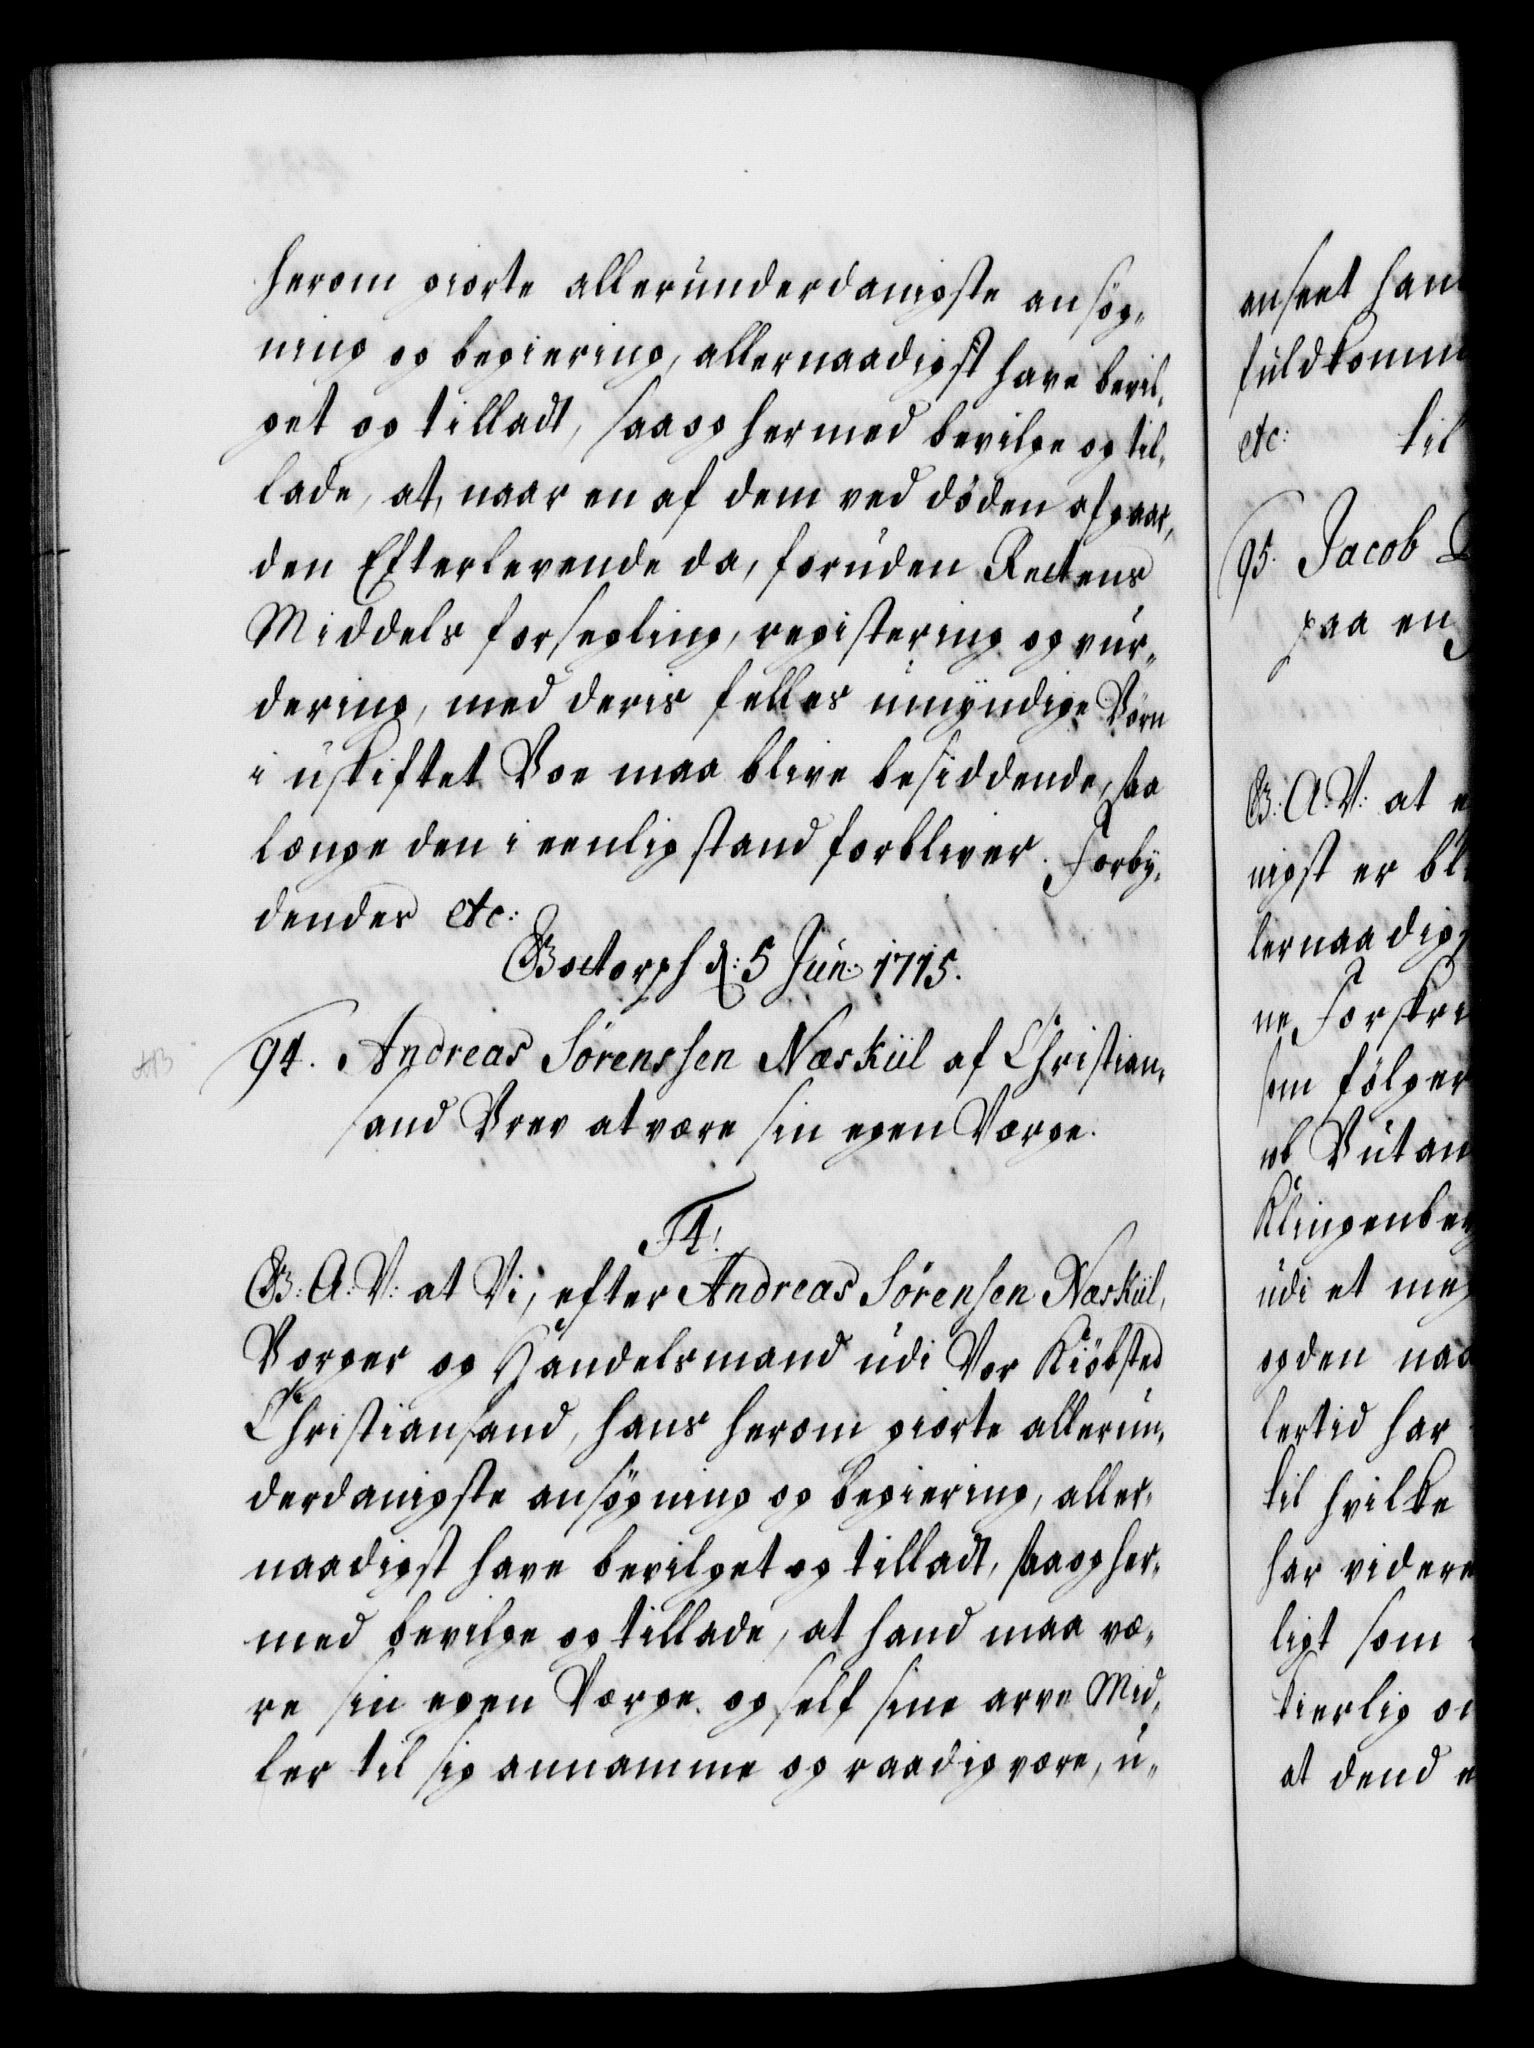 herom giorte allerunderdanigste ansøg-
ning og begiering, allernaadigst have bevil-
get og tilladt, saa og hermed bevilge og til-
lade, at, naar en af dem ved døden afgaar,
den Efterlevende da, foruden Rettens
Middels forsegling, registering og vur-
dering, med deris felles umÿndige Børn
i uskiftet Boe maa blive besiddende, saa
længe den i eenlig stand forbliver. Forby-
dendes etc:
Gottorph d: 5 Jun: 1715.
94. Andreas Sörenssen Næskül af Christian-
sand Brev at være sin egen Værge.
F 4.
G: A: V: at Vi, efter Andreas Sörensen Næskül,
Borger og Handelsmand udi Vor Kiöbsted
Christiansand, hans herom giorte allerun-
derdanigste ansøgning og begiering, aller-
naadigst have bevilget og tilladt, saa og her-
med bevilge og tillade, at hand maa væ-
re sin egen Værge og self sine arve Mid-
ler til sig annamme og raadig være, u-
anseet han
fuldkomm
etc: til
95. Jacob
paa en
G: A: V: at
nigst er bl
lernaadig
ne Forskre
som følger
ob Butan
Klingenber
udi et meg
og den naa
lertid har
til hvilke
har videre
ligt som
kierlig
at dend